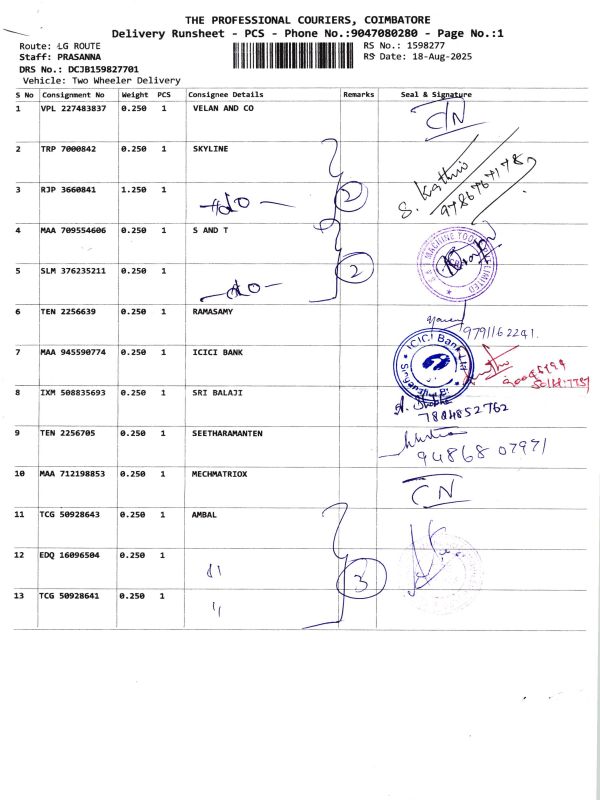 THE PROFESSIONAL COURIERS, COIMBATORE
Delivery Runsheet - PCS - Phone No.:9047080280 - Page No.:1
Route: LG ROUTE
RS No.: 1598277
Staff: PRASANNA
RS Date: 18-Aug-2025
DRS No.: DCJB159827701
Vehicle: Two Wheeler Delivery
S No Consignment No Weight PCS Consignee Details Remarks Seal & Signature
1 VPL 227483837 0.250 1 VELAN AND CO CN
2 TRP 7000842 0.250 1 SKYLINE
S. Kathir
9786767178
3 RJP 3660841 1.250 1 -do- 2
4 MAA 709554606 0.250 1 S AND T
MACHINE TOOLS LIMITED
5 SLM 376235211 0.250 1 -do- 2
6 TEN 2256639 0.250 1 RAMASAMY
9791162241.
7 MAA 945590774 0.250 1 ICICI BANK
ICICI Bank Ltd
8 IXM 508835693 0.250 1 SRI BALAJI
7884852762
9 TEN 2256705 0.250 1 SEETHARAMANTEN
94868 07971
10 MAA 712198853 0.250 1 MECHMATRIOX CN
11 TCG 50928643 0.250 1 AMBAL
12 EDQ 16096504 0.250 1 11 3
13 TCG 50928641 0.250 1 11